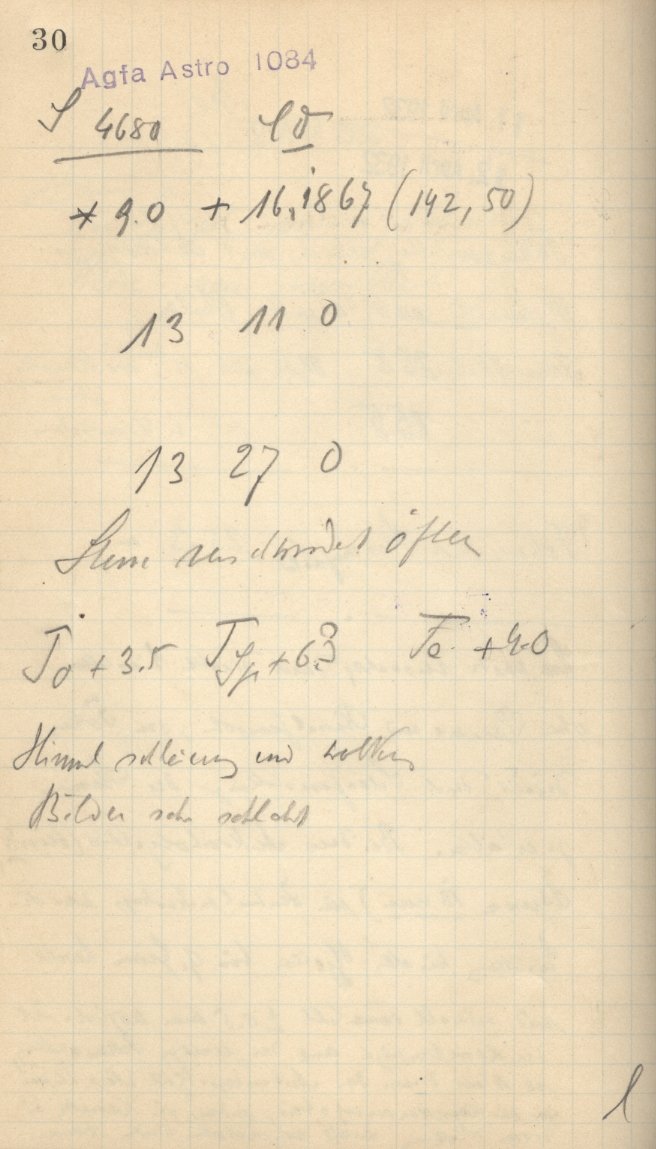 30
Agfa Astro 1084
S 4680
* 9.0 + 16,1867 (142,50)
13 11 0
13 27 0
Stern verschwindet öfter
To + 3.5 TSp + 6.3 Te + 4.0
Himmel schleierig und wolkig
Bilder sehr schlecht